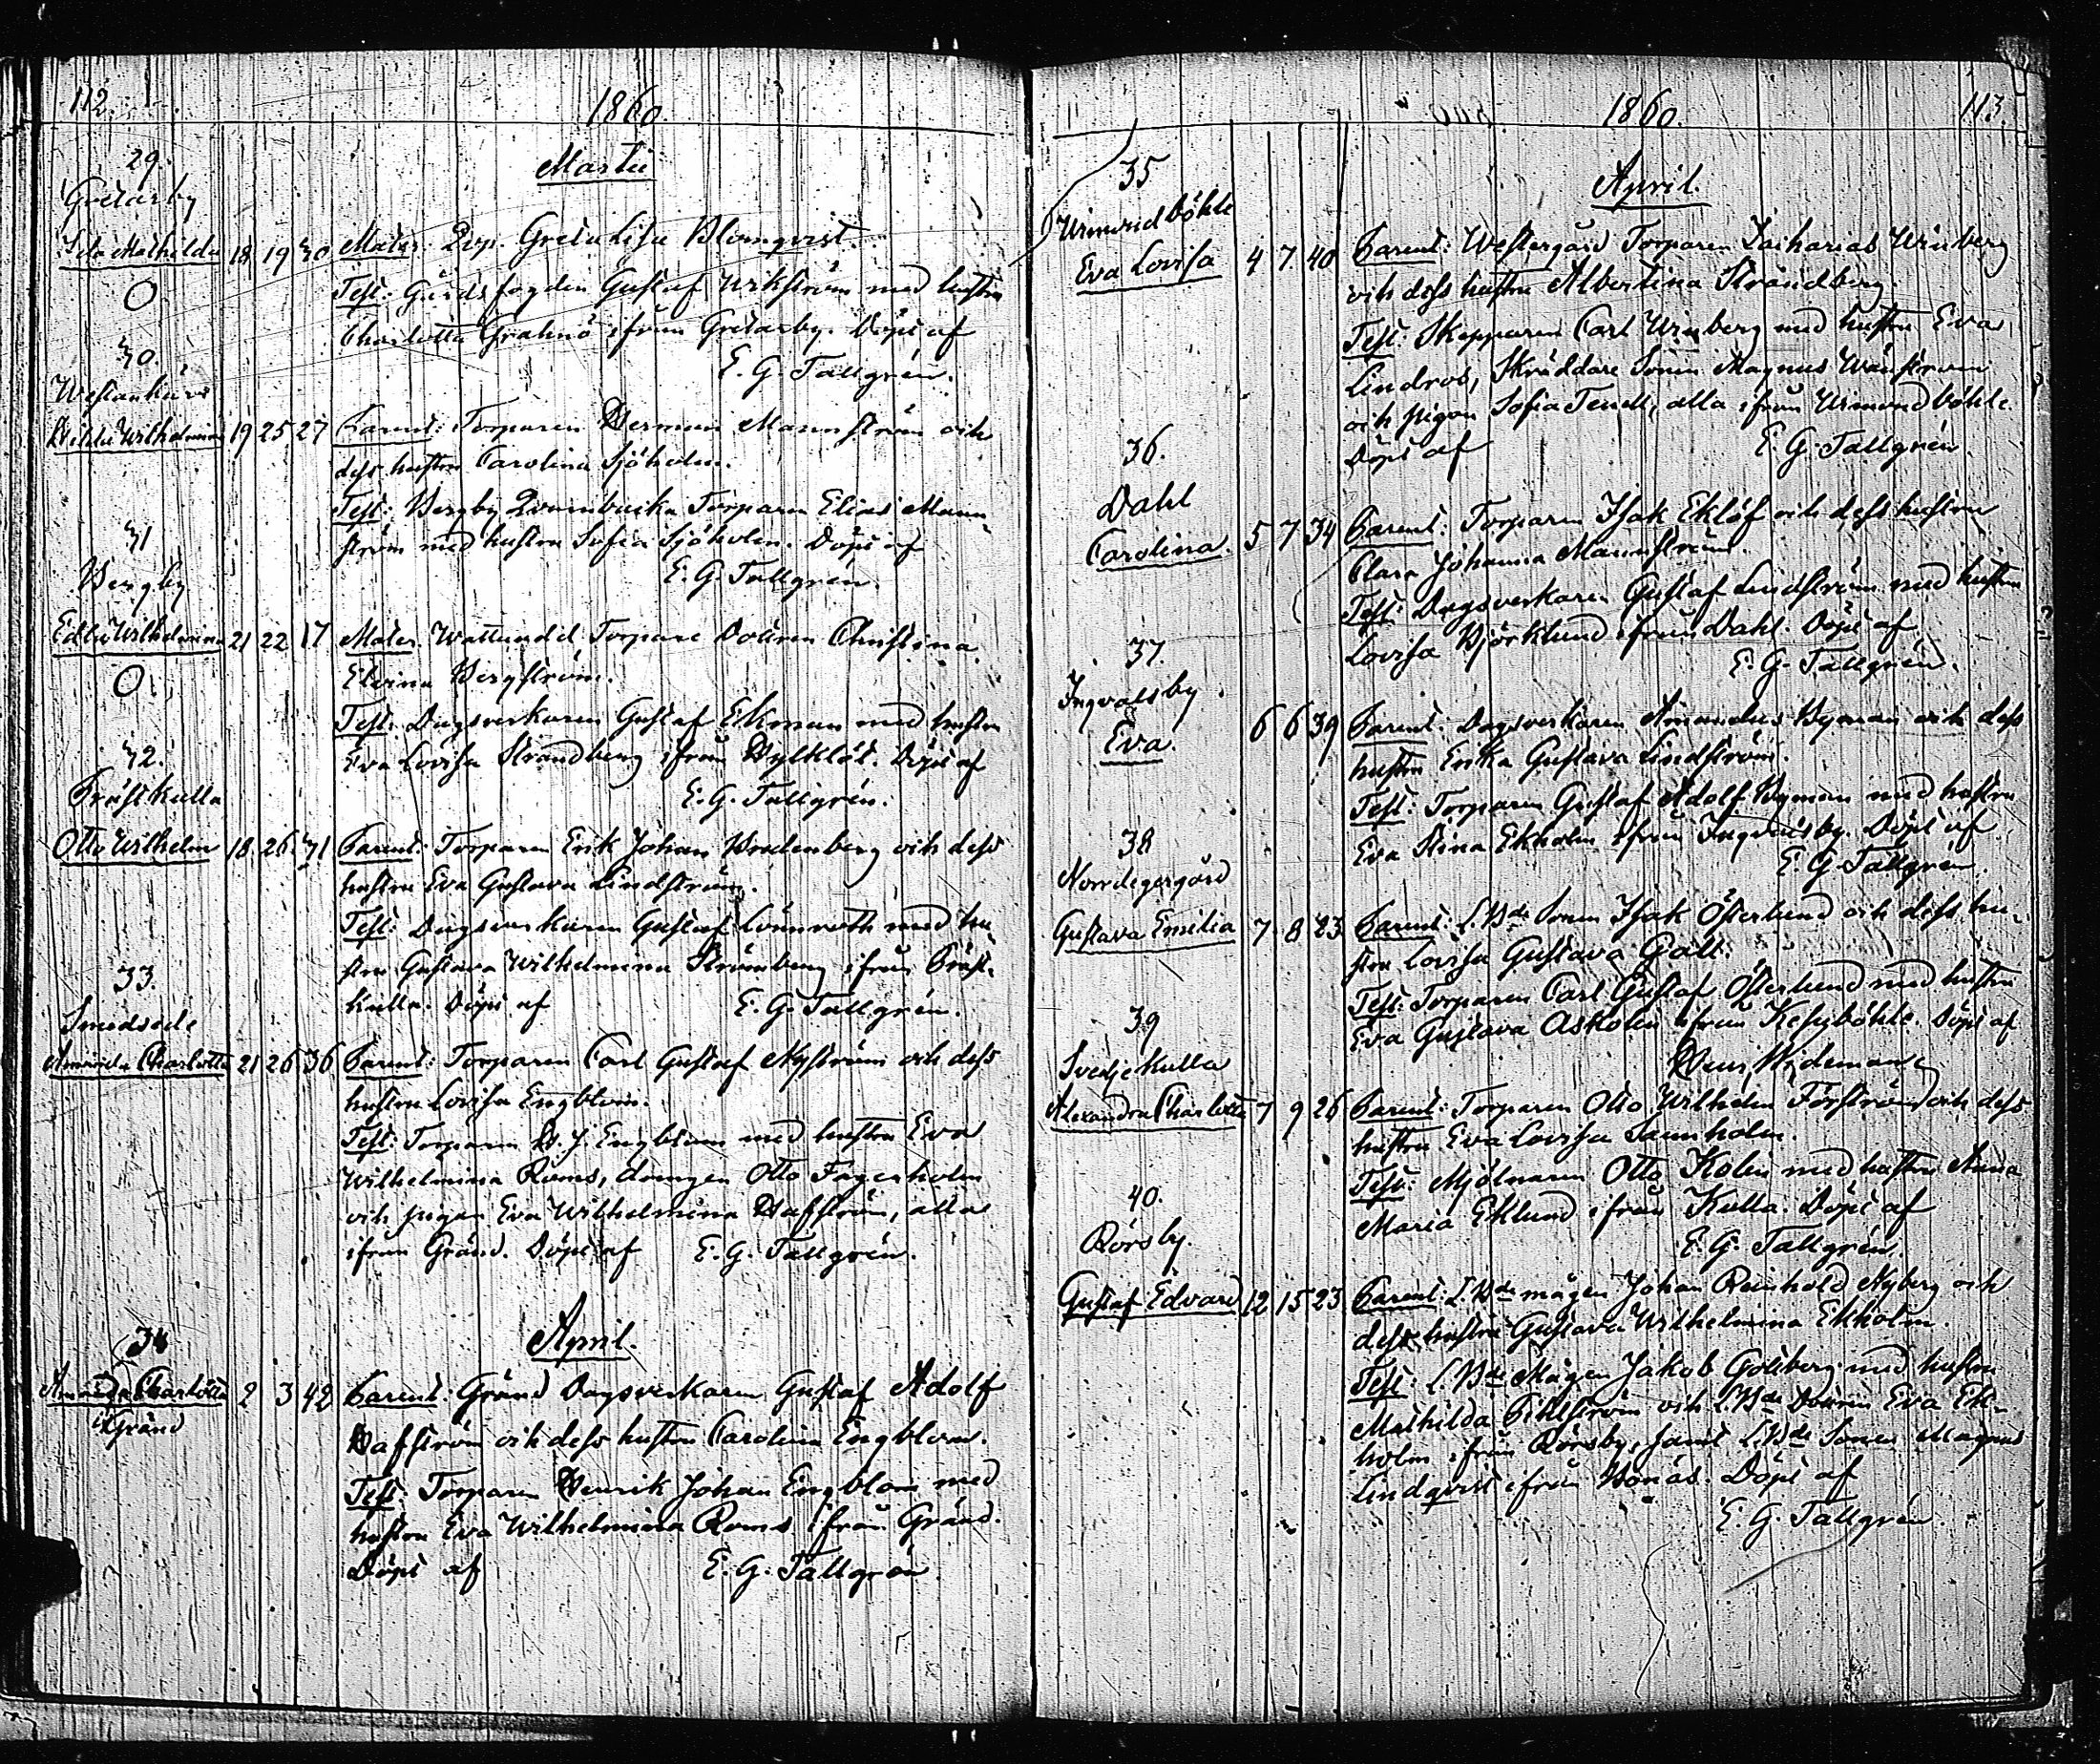 112.
1860.
Martii
29.
Gretarby
Ida Mathilda 18 19 30 Mater: Qvp. Greta Lisa Blomqvist.
Test: Gårdsfogden Gustaf Wikström med hustru
Charlotta Grahnö ifrån Gretarby. Döpt af
E. G. Tallgrén.
30.
Westankärr
Hilda Wilhelmina 19 25 27 Parent: Torparen Herman Mannström och
dess hustru Carolina Sjöholm.
Test: Bergby Torparen Elias Mann-
ström med hustru Sofia Sjöholm. Döpt af
E. G. Tallgrén.
31
Bergby
Edla Wilhelmina 21 22 17 Mater. Torpare Dottren Christina
Elvina Bergström.
Test: Dagsverkaren Gustaf Ekman med hustru
Eva Lovisa Strandberg ifrån Döpt af
E. G. Tallgrén.
32.
Prästkulla
Otto Wilhelm 18 26 31 Parent: Torparen Erik Johan Bredenberg och dess
hustru Eva Gustava Lindström.
Test: Dagsverkaren Gustaf Lönnroth med hu-
stru Gustava Wilhelmina Strömberg ifrån Präst-
kulla. Döpt af E. G. Tallgrén.
33.
Smedsede
Amanda Charlotta 21 26 36 Parent: Torparen Carl Gustaf Nyström och dess
hustru Lovisa Engblom.
Test: Torparen H. J. Engblom med hustru Eva
Wilhelmina Roms, drengen Otto Fagerholm
och pigan Eva Wilhelmina Hafström, alla
ifrån Gränd. Döpt af E. G. Tallgrén.
April.
34
Amanda Charlotta 2 3 42 Parent: Gränd Dagsverkaren Gustaf Adolf
i Gränd
Hafström och dess hustru Carolina Engblom.
Test: Torparen Henrik Johan Engblom med
hustru Eva Wilhelmina Roms ifrån Gränd.
Döpt af E. G. Tallgrén
1860.
113.
April.
35
Eva Lovisa 4 7 40 Parent: Westergård Torparen Zacharias Winberg
och dess hustru Albertina Strandberg.
Test: Skepparen Carl Winberg med hustru Eva
Lindros, Skräddare Sonen Magnus Wänström
och pigan Sofia Tenell, alla ifrån
Döpt af E. G. Tallgrén
36.
Dahl
Carolina. 5 7 34 Parent: Torparen Isak Eklöf och dess hustru
Clara Johanna Mannström.
Test: Dagsverkaren Gustaf Lindström med hustru
Lovisa Björklund ifrån Dahl. Döpt af
E. G. Tallgrén.
37.
Ingvalsby.
Eva. 6 6 39 Parent: Dagsverkaren Amandus Nyman och dess
hustru Erika Gustava Lindström.
Test: Torparen Gustaf Adolf Nyman med hustru
Eva Stina Ekholm ifrån Ingvalsby. Döpt af
E. G. Tallgrén.
38
Norrdegergård
Gustava Emilia 7 8 23 Parent: L. Bde Sonen Isak Österlund och dess hu-
stru Lovisa Gustava Galt.
Test: Torparen Carl Gustaf Österlund med hustru
Eva Gustava Askolin ifrån Döpt af
Henr. Widemann
39
Svedjekulla
Alexandra Charlotta 7 9 26 Parent: Torparen Otto Wilhelm Förström och dess
hustru Eva Lovisa Sannholm.
Test: Mjölnaren Otto Kolin med hustru Anna
Maria Eklund ifrån Kulla. Döpt af
E. G. Tallgrén.
40.
Rörsby.
Gustaf Edvard 12 15 23 Parent: L. Bde mågen Johan Reinhold Nyberg och
dess hustru Gustava Wilhelmina Ekholm.
Test: L. Bde Mågen Jakob Gottberg med hustru
Mathilda Pihlström och L. Bde Dottren Eva Ek-
holm ifrån Rörsby, samt L. Bde Sonen Magnus
Lindqvist ifrån Bonäs. Döpt af
E. G. Tallgrén.